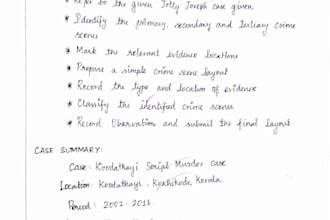 * Refer to the given Jolly Joseph case given
* Identify the primary, secondary and tertiary crime
scenes
* Mark the relevant evidence locations
* Prepare a simple crime scene layout
* Record the type and location of evidence
* Classify the identified crime scenes
* Record Observation and submit the final layout
CASE SUMMARY:
Case: Koodathayi Serial Murder case
Location: Koodathayi, Kozhikode, Kerala
Period: 2002-2016